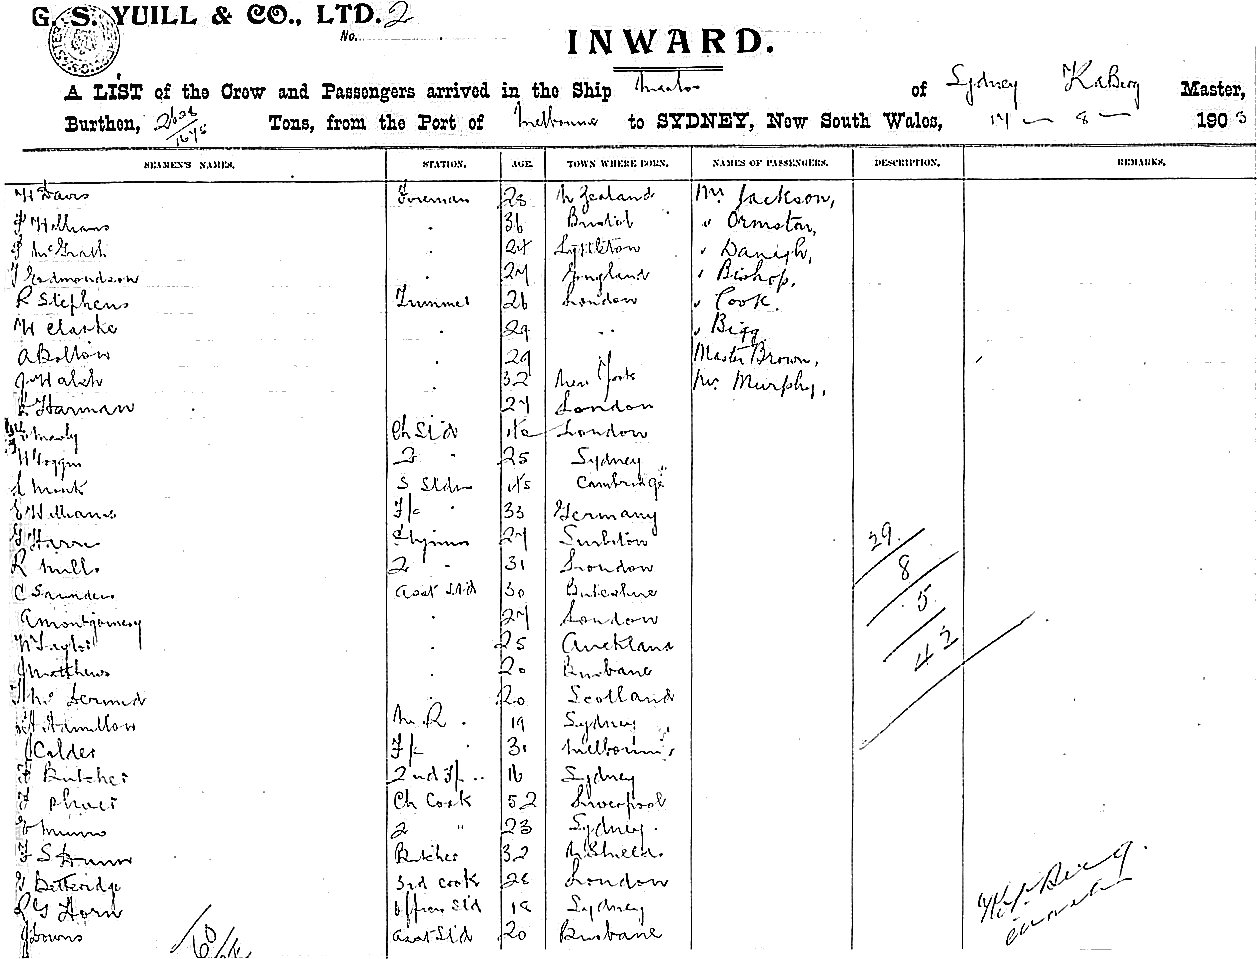 G. S. YUILL & CO., LTD. 2
No.
INWARD.
A LIST of the Crew and Passengers arrived in the Ship of Sydney Master,
Burthen, Tons, from the Port of Melbourne to SYDNEY, New South Wales, 17 - 8 - 1903
SEAMEN'S NAMES. STATION. AGE. TOWN WHERE BORN. NAMES OF PASSENGERS. DESCRIPTION. REMARKS.
H Davis Foreman 28 N Zealand Mr Jackson,
Williams . 36 Bristol " Ormston,
McGrath . 24 Lyttleton " Danigh,
Edmondson . 27 England " Bishop,
R Stephens Trimmer 26 London " Cook.
H Clarke . 29 .. " Bigg
A Bollow . 29 Master Brown,
J Walsh . 32 New York Mr Murphy,
Harman 27 London
Ch Std London
2 " 25 Sydney
Monk S Stdss Cambridge
E Williams F/c " 33 Germany
27 Surbiton 29
R Mills 2 " 31 London 8
C Saunders Asst Std 30 Buteshire 5
A Montgomery . 27 London
W Taylor . 25 Auckland 42
J Matthews . 20 Brisbane
McDermid . 20 Scotland
Hamilton M.R. 19 Sydney
J Calder F/c " 31 Melbourne
Butcher 2nd F/c .. 16 Sydney
Ch Cook 52 Liverpool
Munro 2 " 23 Sydney.
Butcher 32 N Shields
Betteridge 3rd Cook 28 London
R G Horn Officers Std 18 Sydney
J Downs Asst Std 20 Brisbane